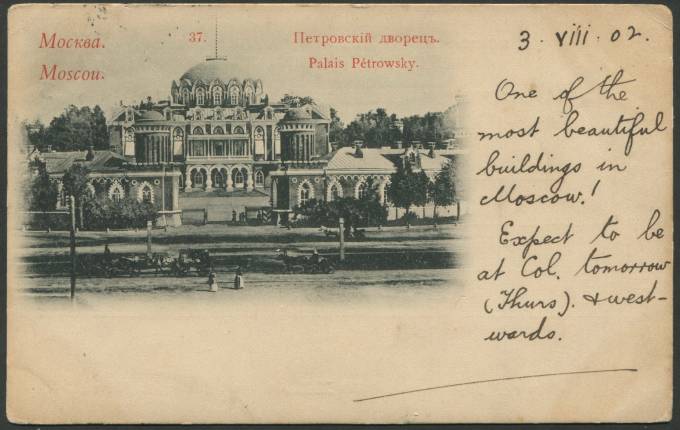 Москва.
Moscou.
37.
Петровскій дворецъ.
Palais Pétrowsky.
3 · VIII · 02.
One of the
most beautiful
buildings in
Moscow!
Expect to be
at Col. tomorrow
(Thurs). & west-
wards.